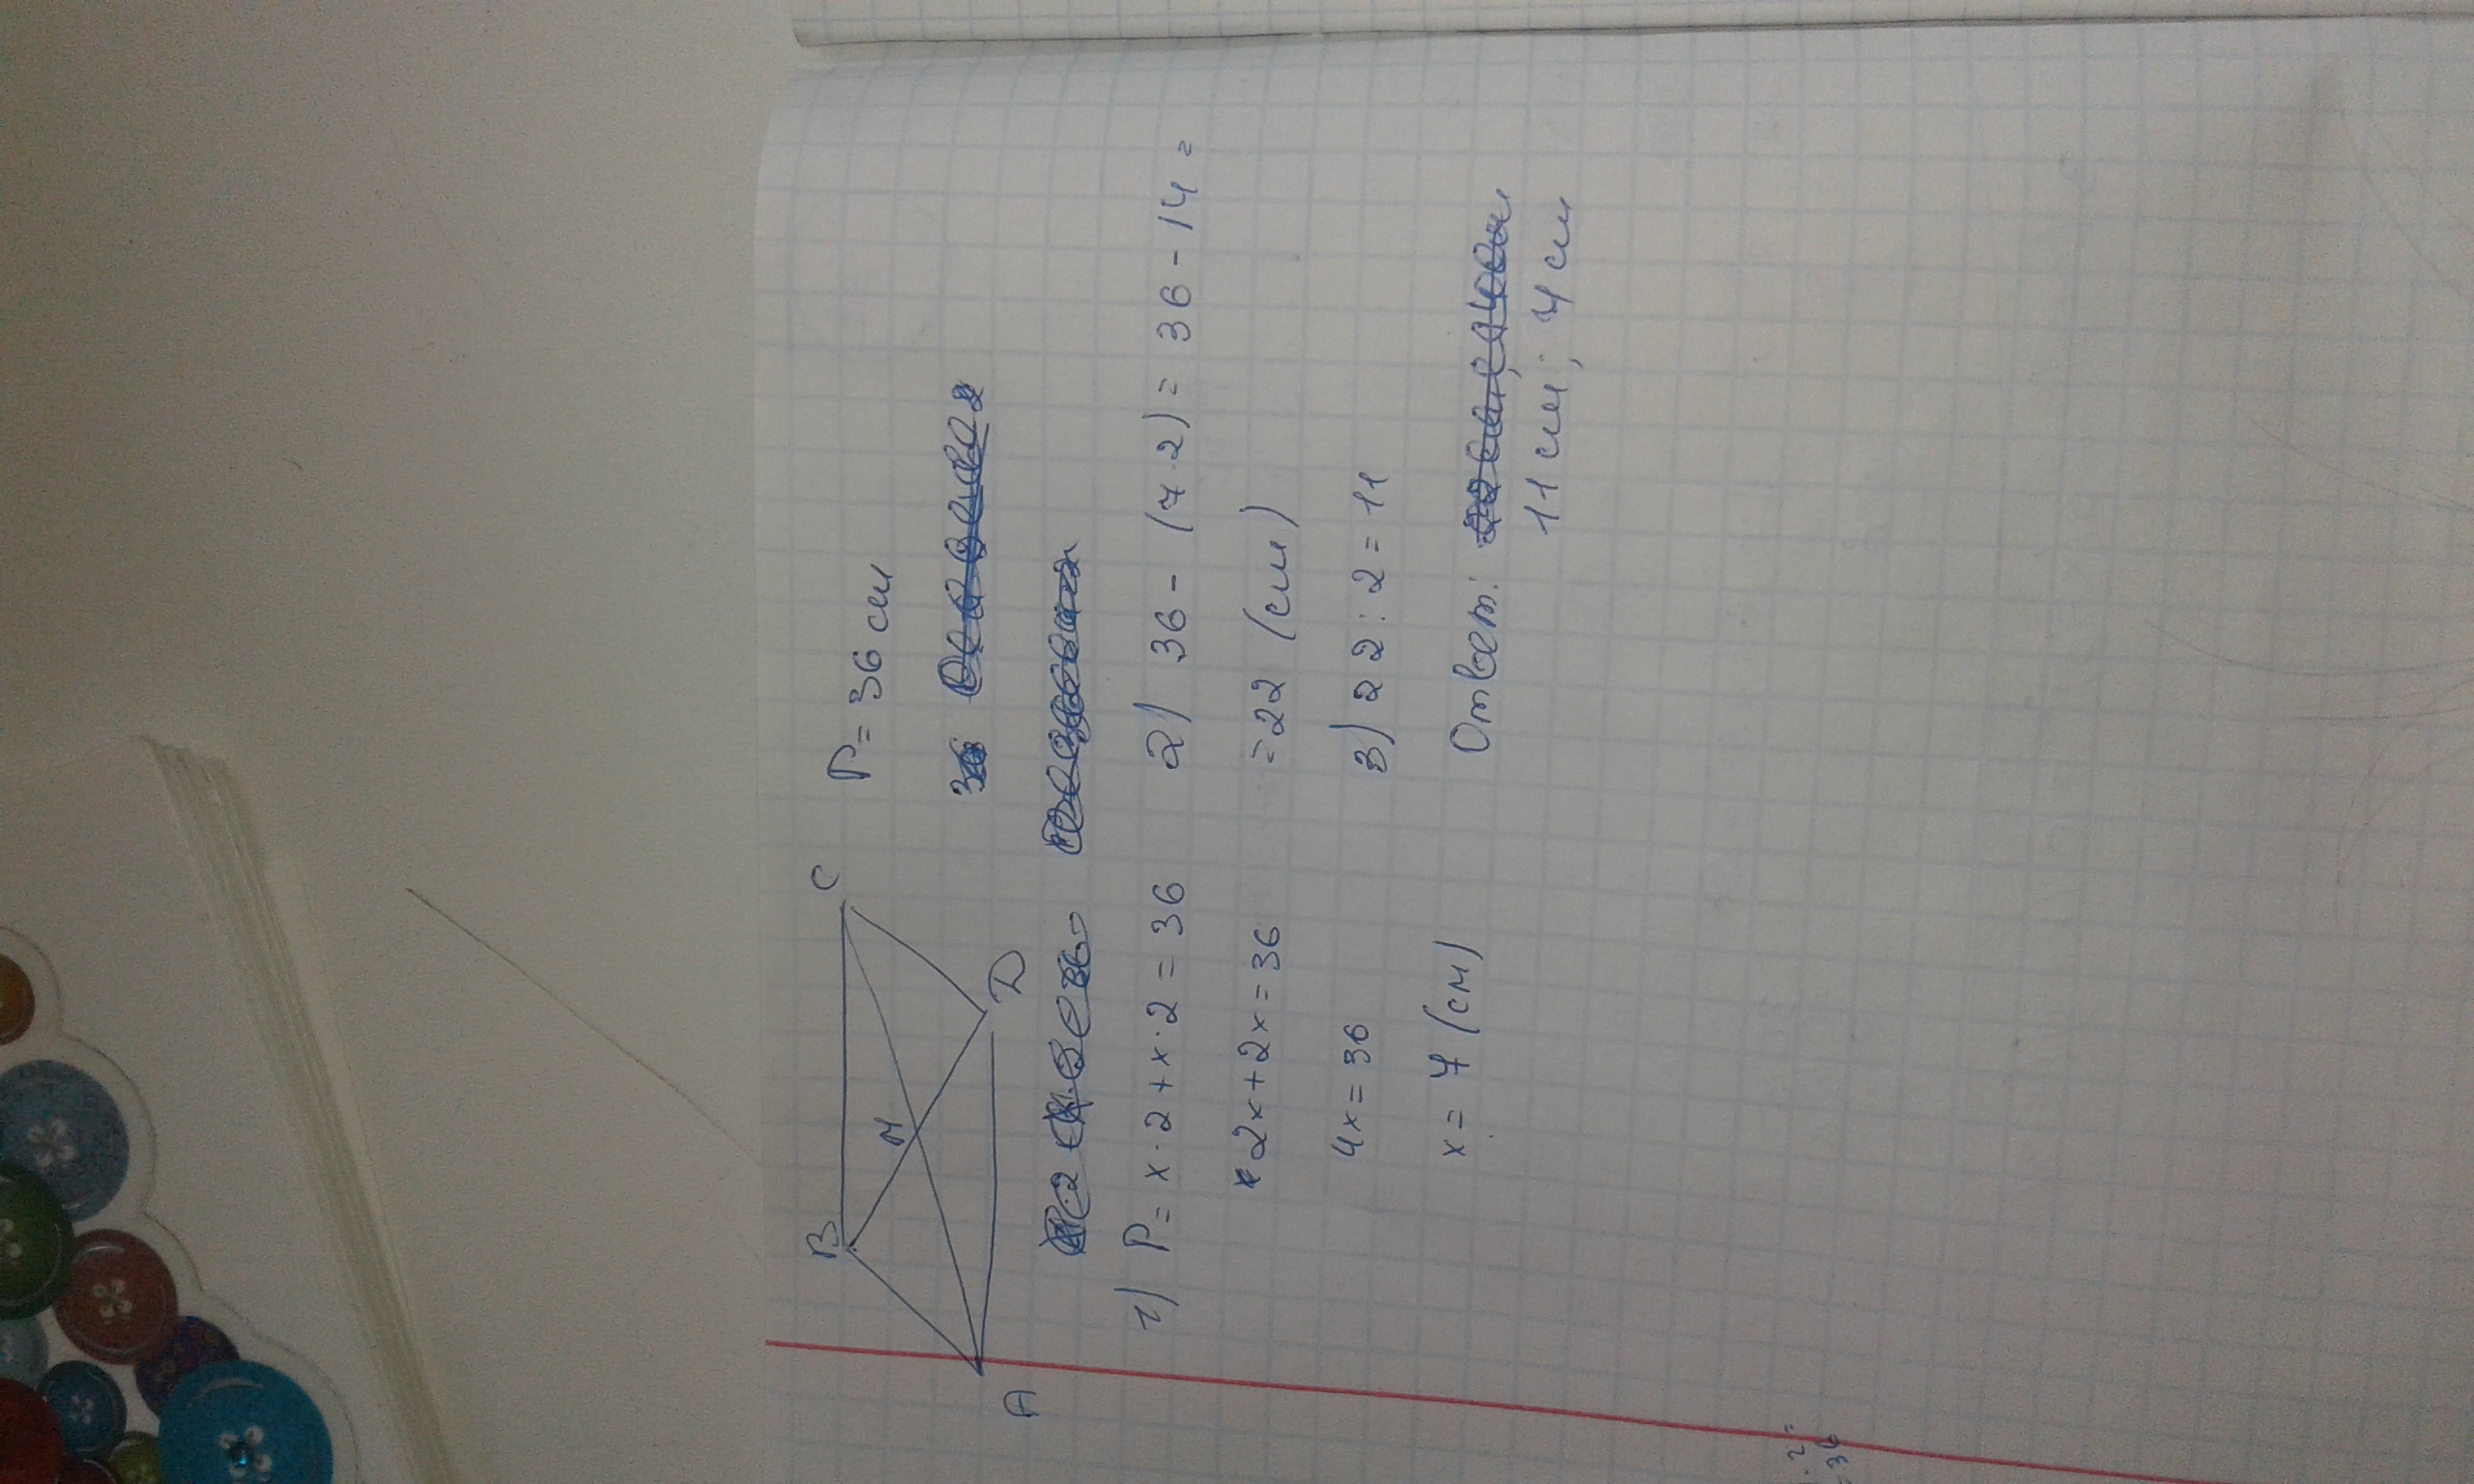 B C
M
A D
P = 36 см
1) P = x · 2 + x · 2 = 36
2x + 2x = 36
4x = 36
x = 7 (см)
2) 36 - (7 · 2) = 36 - 14 =
= 22 (см)
3) 22 : 2 = 11
Ответ:
11 см; 7 см